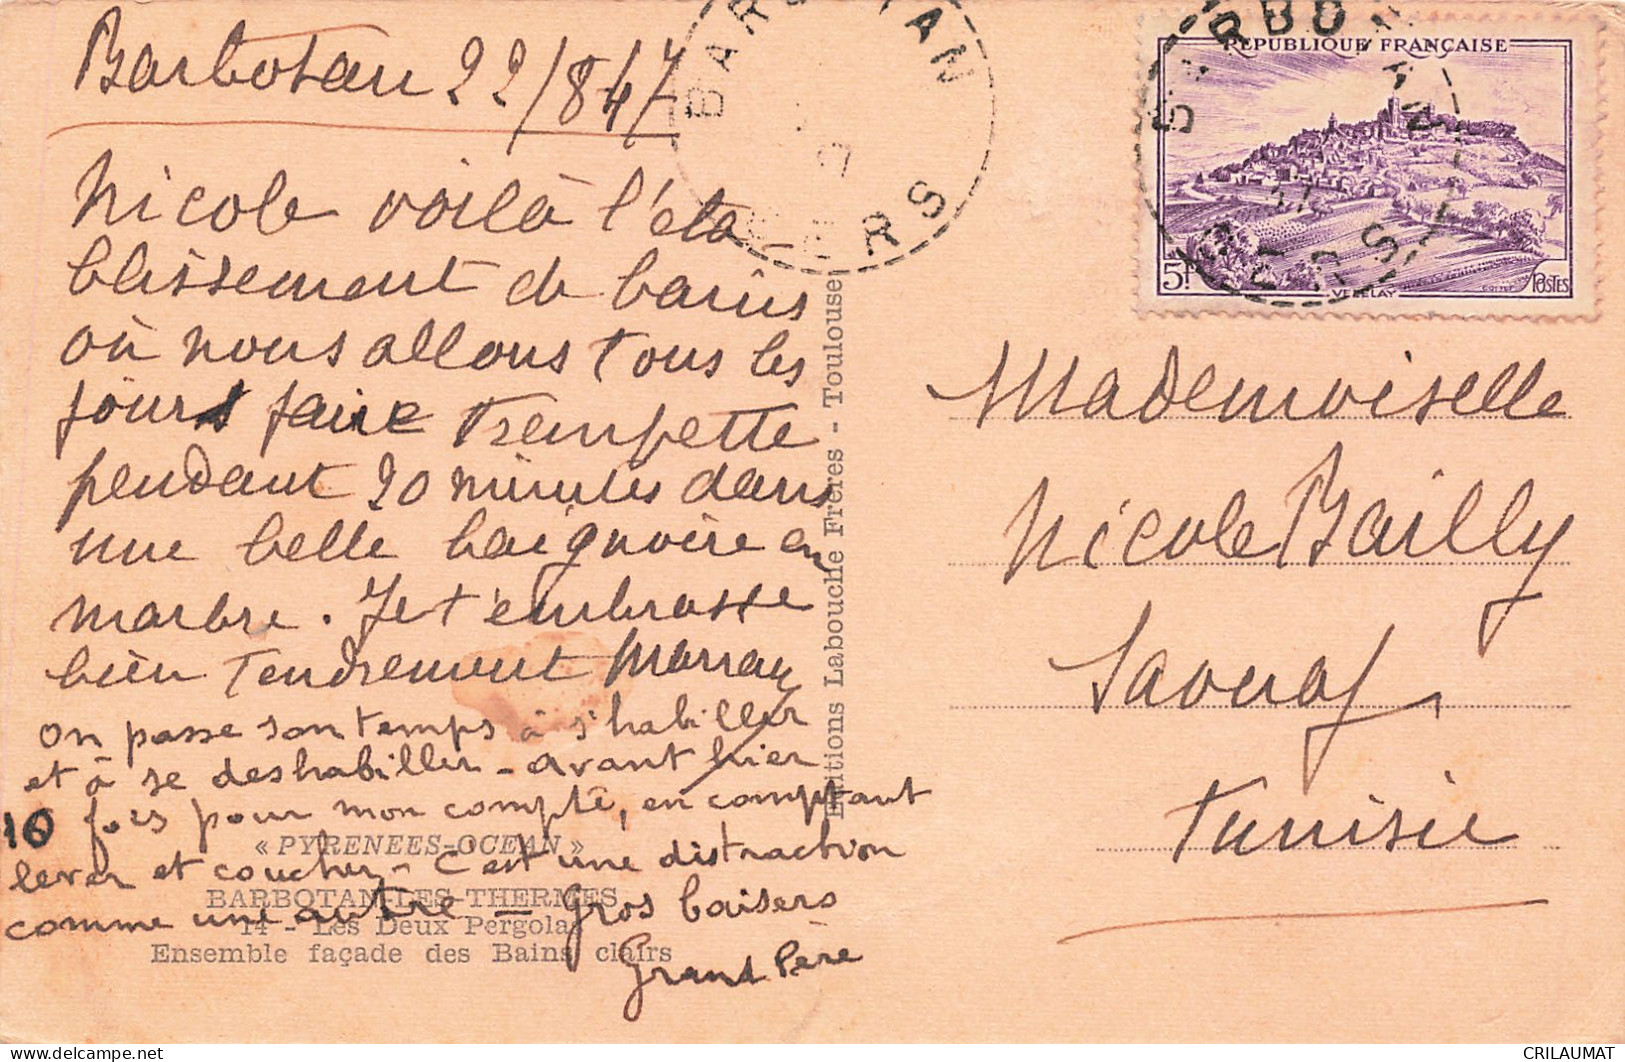 Barbotan 22/8 47
Nicole voilà l'éta-
blissement de bains
où nous allons tous les
jours faire trempette
pendant 20 minutes dans
une belle baignoire en
marbre. Je t'embrasse
bien tendrement Marray
On passe son temps à s'habiller
et à se deshabiller - avant hier
10 fois pour mon compte, en comptant
lever et coucher - C'est une distraction
comme une autre - Gros baisers
Grand Père
« PYRENEES-OCEAN »
BARBOTAN-LES-THERMES
14 - Les Deux Pergolas
Ensemble façade des Bains clairs
Editions Labouche Frères - Toulouse
BARBOTAN
GERS
REPUBLIQUE FRANÇAISE
5f
VEZELAY
POSTES
BARBOTAN
GERS
Mademoiselle
Nicole Bailly
Saouaf
Tunisie
CRILAUMAT